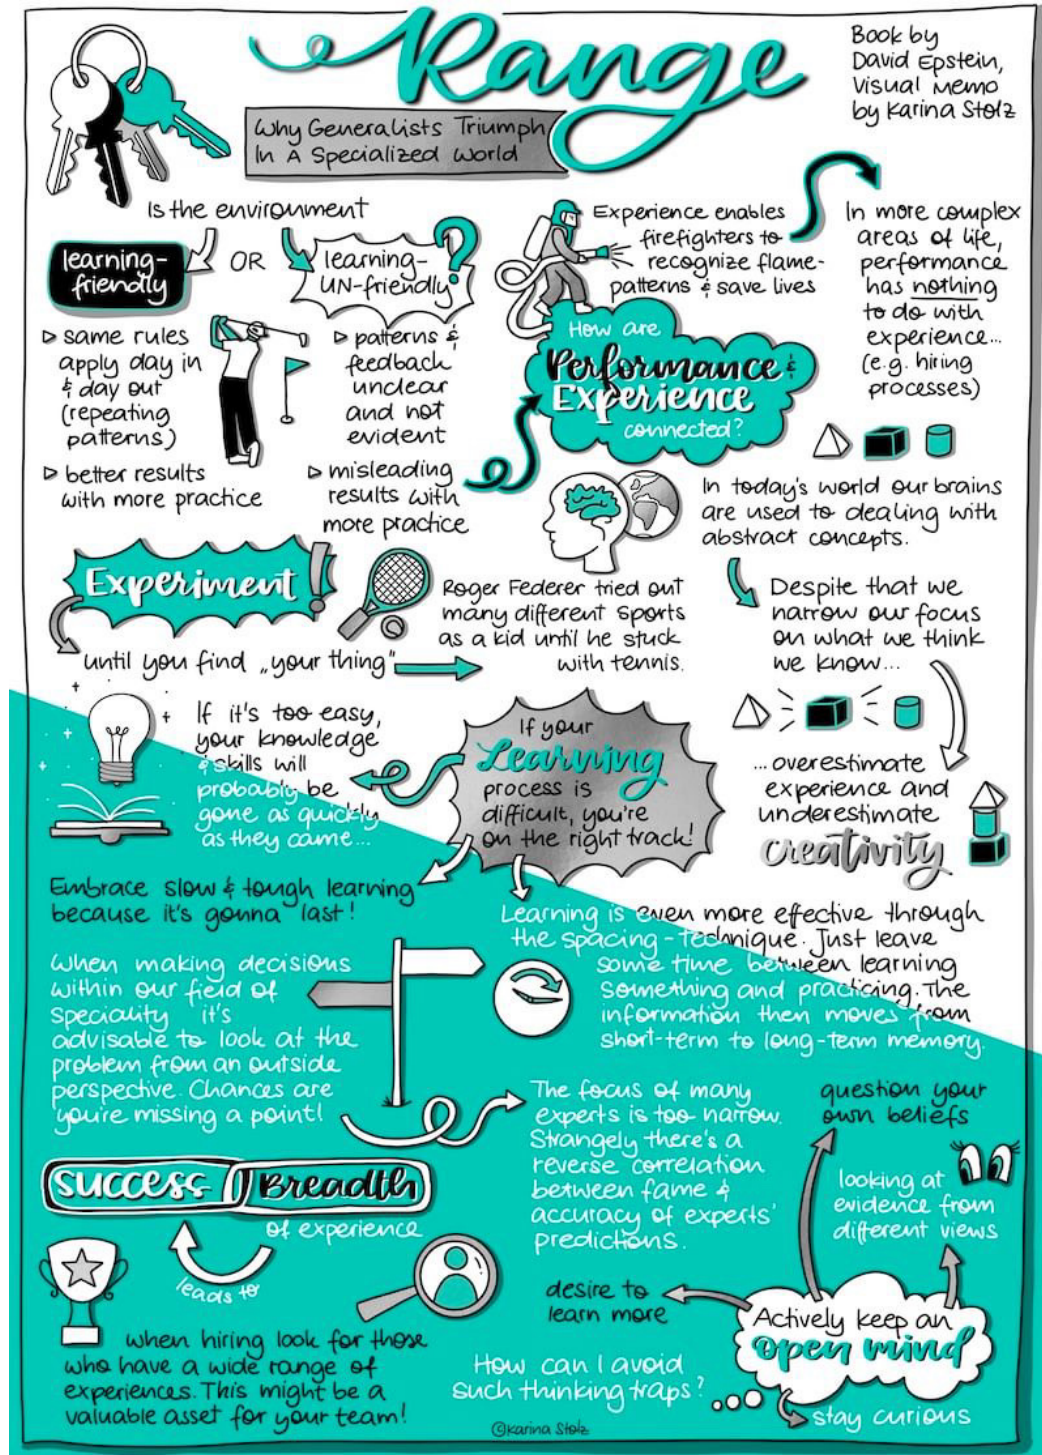 Range
Why Generalists Triumph
In A Specialized World
Book by
David Epstein,
Visual Memo
by Karina Stolz
Is the environment
learning-
friendly
OR
learning-
UN-friendly
?
▷ same rules
apply day in
& day out
(repeating
patterns)
▷ better results
with more practice
▷ patterns &
feedback
unclear
and not
evident
▷ misleading
results with
more practice
Experience enables
firefighters to
recognize flame-
patterns & save lives
How are
Performance &
Experience
connected?
In more complex
areas of life,
performance
has nothing
to do with
experience...
(e.g. hiring
processes)
In today's world our brains
are used to dealing with
abstract concepts.
Despite that we
narrow our focus
on what we think
we know...
... overestimate
experience and
underestimate
creativity
Experiment!
until you find „your thing"
Roger Federer tried out
many different sports
as a kid until he stuck
with tennis.
If your
Learning
process is
difficult, you're
on the right track!
If it's too easy,
your knowledge
& skills will
probably be
gone as quickly
as they came...
Embrace slow & tough learning
because it's gonna last!
Learning is even more effective through
the spacing-technique. Just leave
some time between learning
something and practicing. The
information then moves from
short-term to long-term memory.
When making decisions
within our field of
speciality it's
advisable to look at the
problem from an outside
perspective. Chances are
you're missing a point!
The focus of many
experts is too narrow.
Strangely there's a
reverse correlation
between fame &
accuracy of experts'
predictions.
Success Breadth
of experience
leads to
when hiring look for those
who have a wide range of
experiences. This might be a
valuable asset for your team!
How can I avoid
such thinking traps?
Actively keep an
open mind
desire to
learn more
question your
own beliefs
looking at
evidence from
different views
stay curious
©Karina Stolz